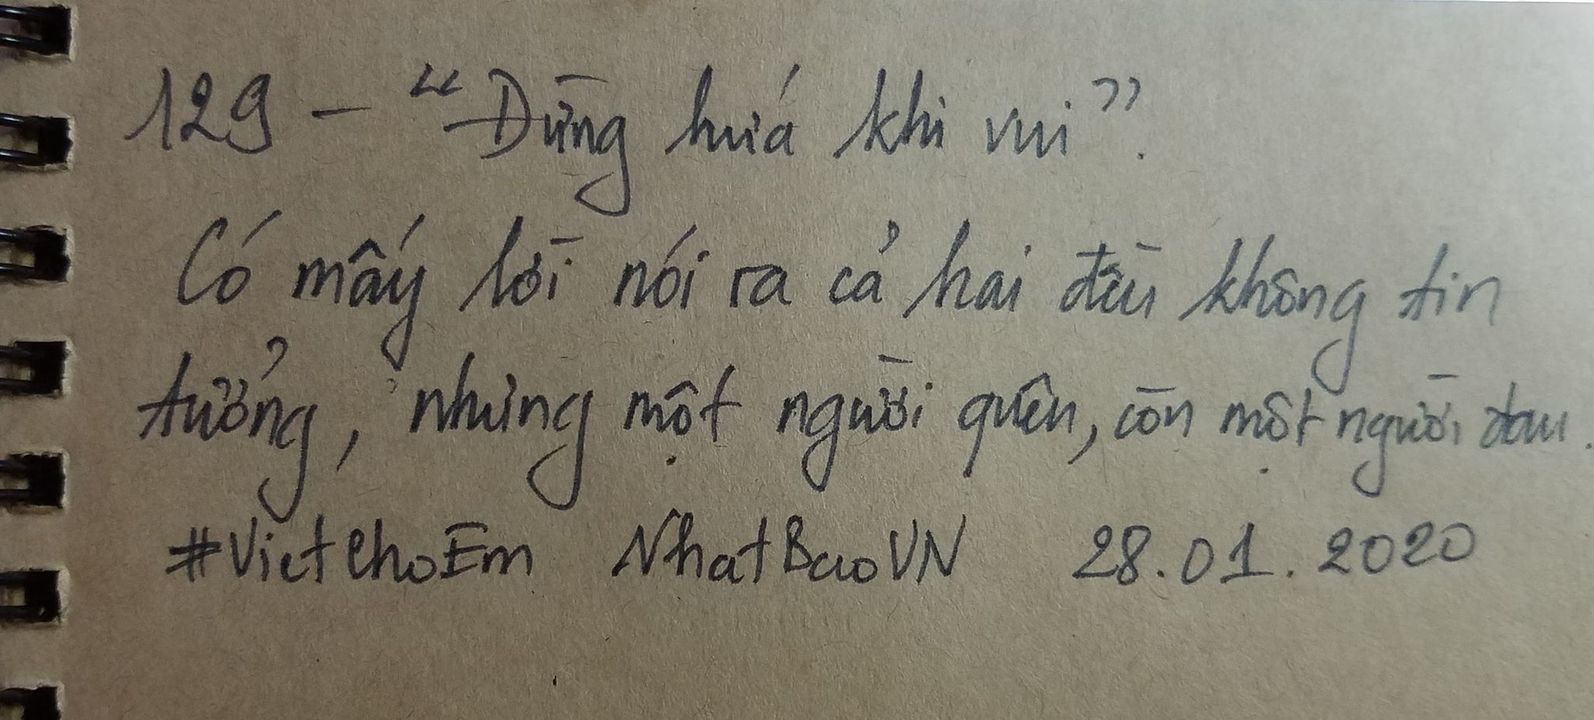 129 - "Đừng hứa khi vui".
Có mấy lời nói ra cả hai đều không tin
tưởng, nhưng một người quên, còn một người đau.
#VietChoEm NhatBaoVN 28.01.2020